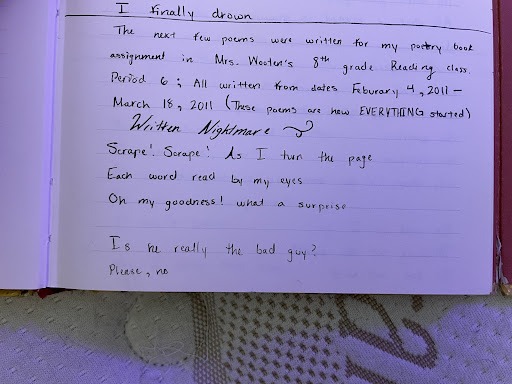 I finally drown
The next few poems were written for my poetry book
assignment in Mrs. Wooten's 8th grade Reading class.
Period 6; All written from dates Feburary 4, 2011 –
March 18, 2011 (These poems are how EVERYTHING started)
Written Nightmare
Scrape! Scrape! As I turn the page
Each word read by my eyes
Oh my goodness! what a surprise
Is he really the bad guy?
Please, no